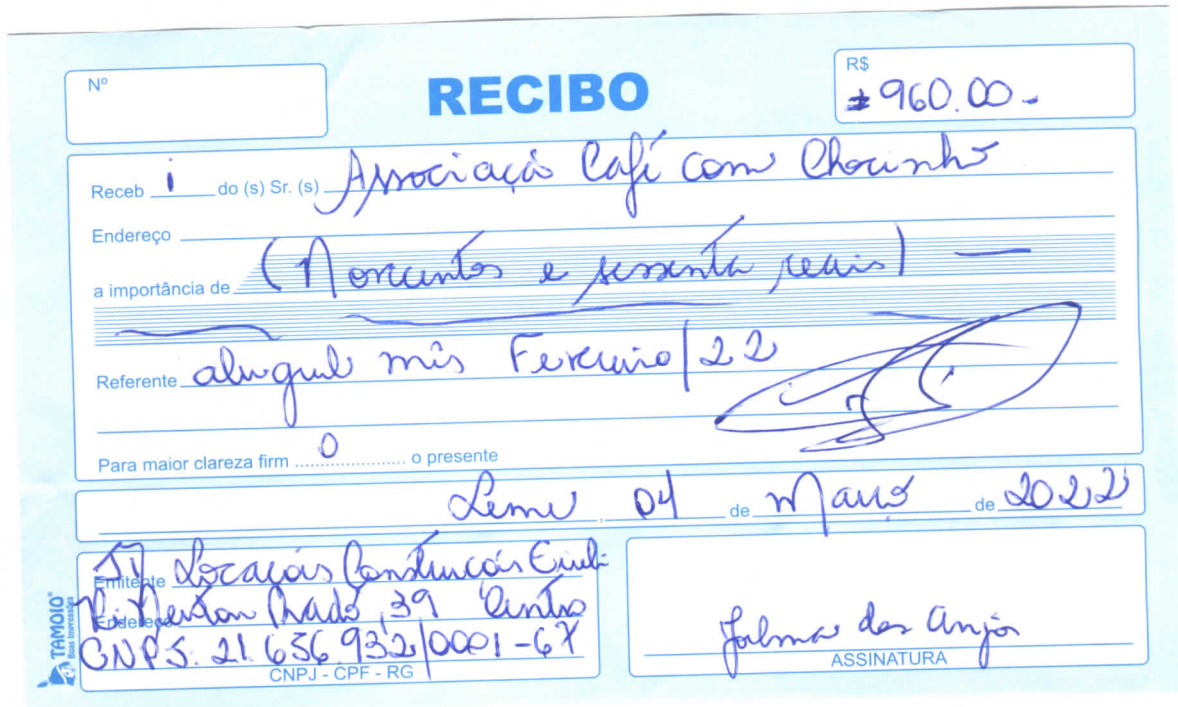 Nº
RECIBO
R$
# 960.00 -
Receb i do (s) Sr. (s) Associação Café com Chorinho
Endereço
a importância de (Novecentos e sessenta reais) —
Referente aluguel mês Fevereiro/22
Para maior clareza firm o o presente
Leme, 04 de Março de 2022
Emitente Locações Construções Eireli
Endereço Newton Prado, 39 Centro
CNPJ. 21.656.932/0001-67
CNPJ - CPF - RG
dos Anjos
ASSINATURA
TAMOIO®
Boas Impressões